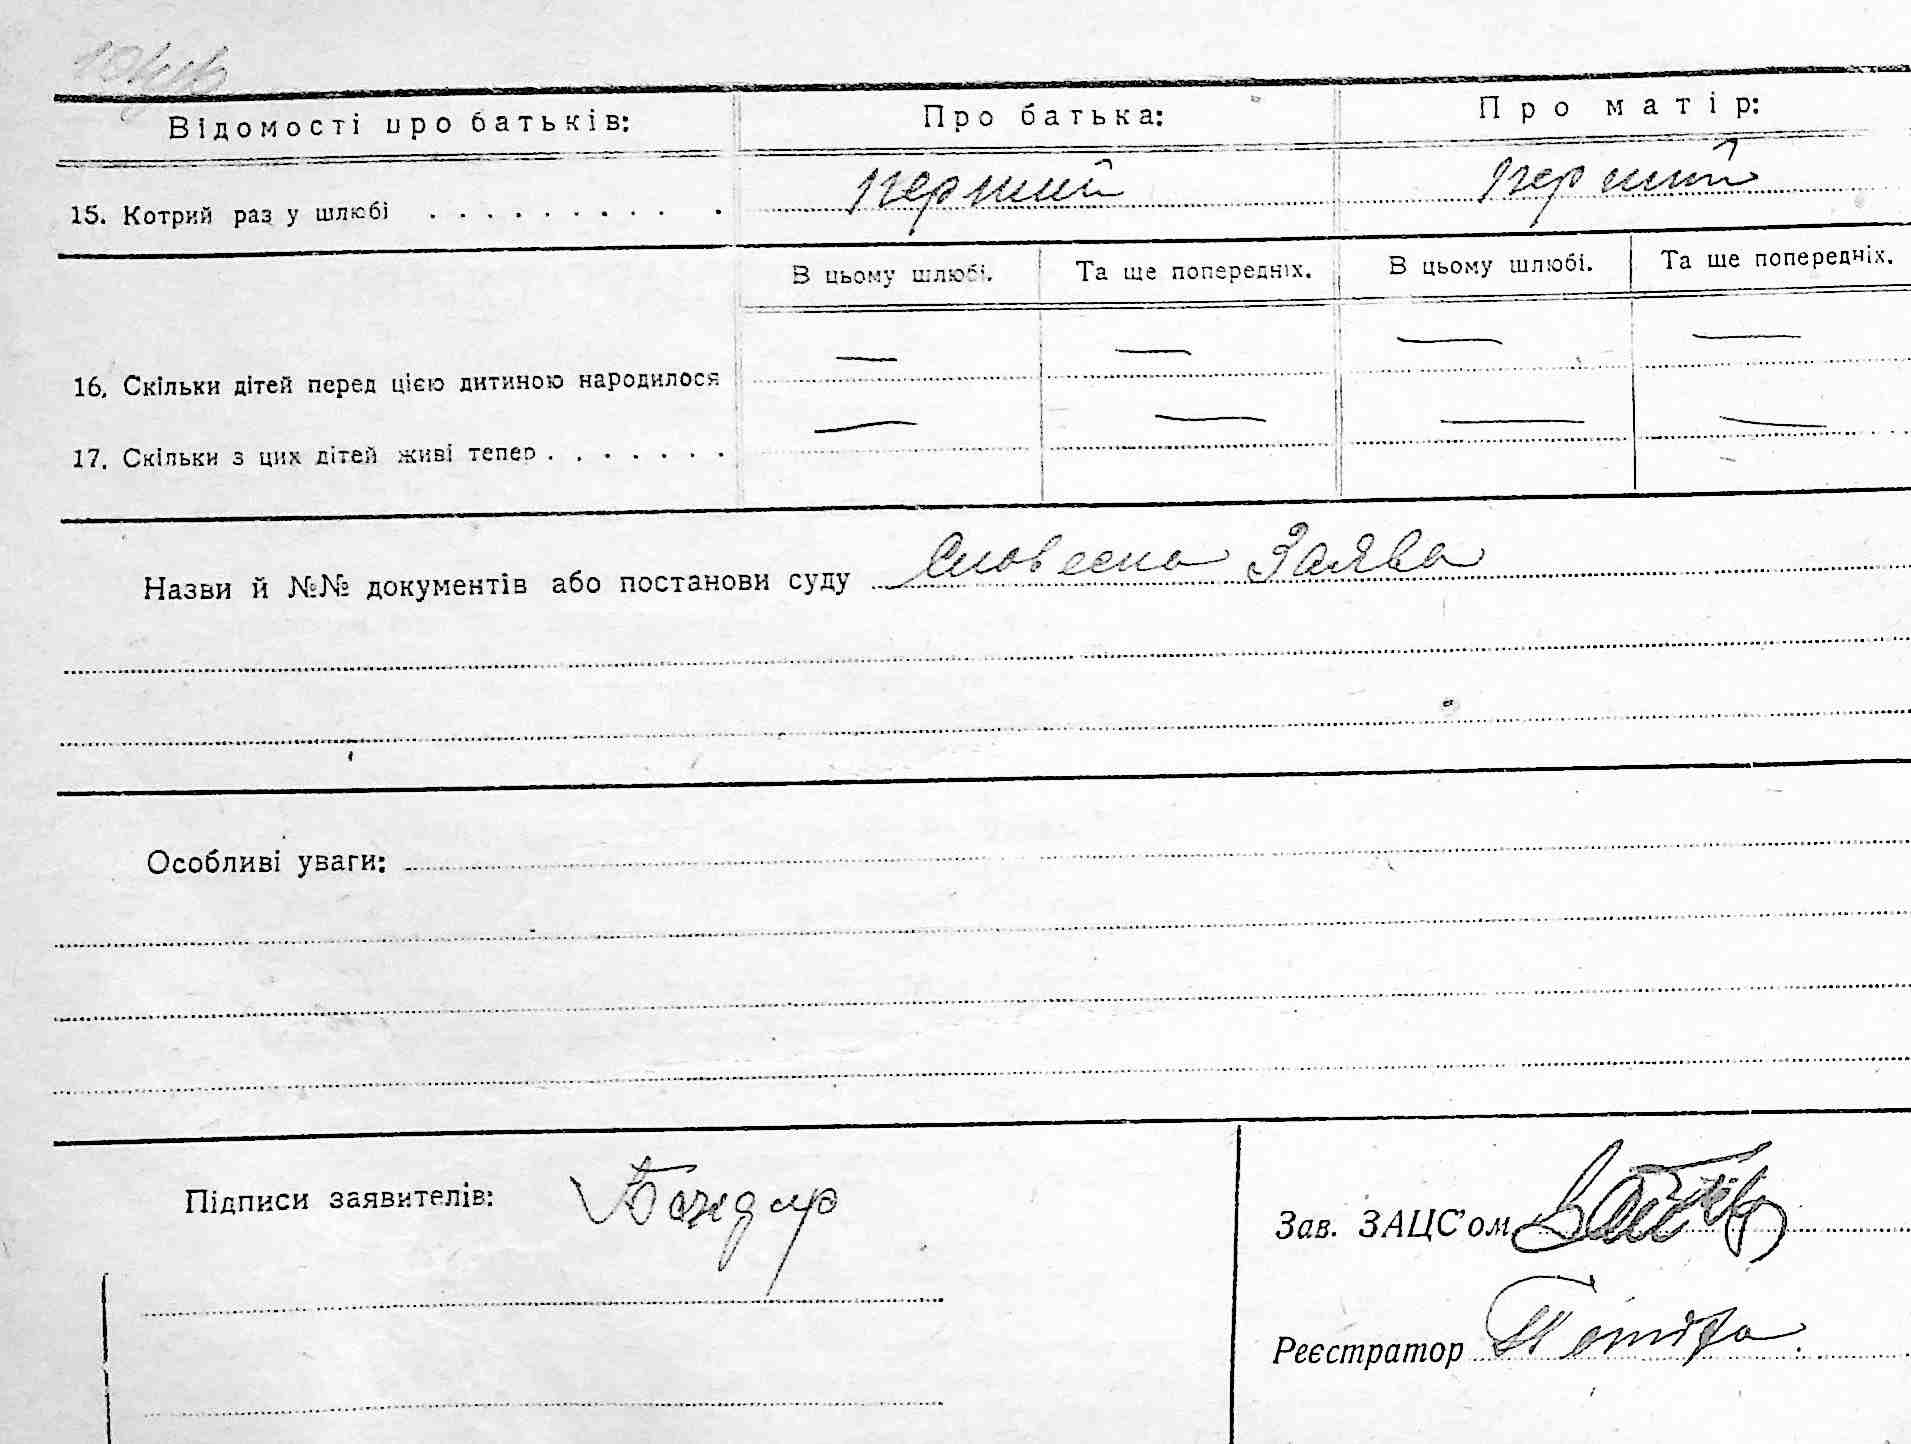 Відомості про батьків: Про батька: Про матір:
15. Котрий раз у шлюбі . . . . . . . . . . перший перший
В цьому шлюбі. Та ще попередніх. В цьому шлюбі. Та ще попередніх.
16. Скільки дітей перед цією дитиною народилося — — — —
17. Скільки з цих дітей живі тепер . . . . . . . — — — —
Назви й №№ документів або постанови суду Словесна Заява
Особливі уваги:
Підписи заявителів: Бондар
Зав. ЗАЦС'ом
Реєстратор